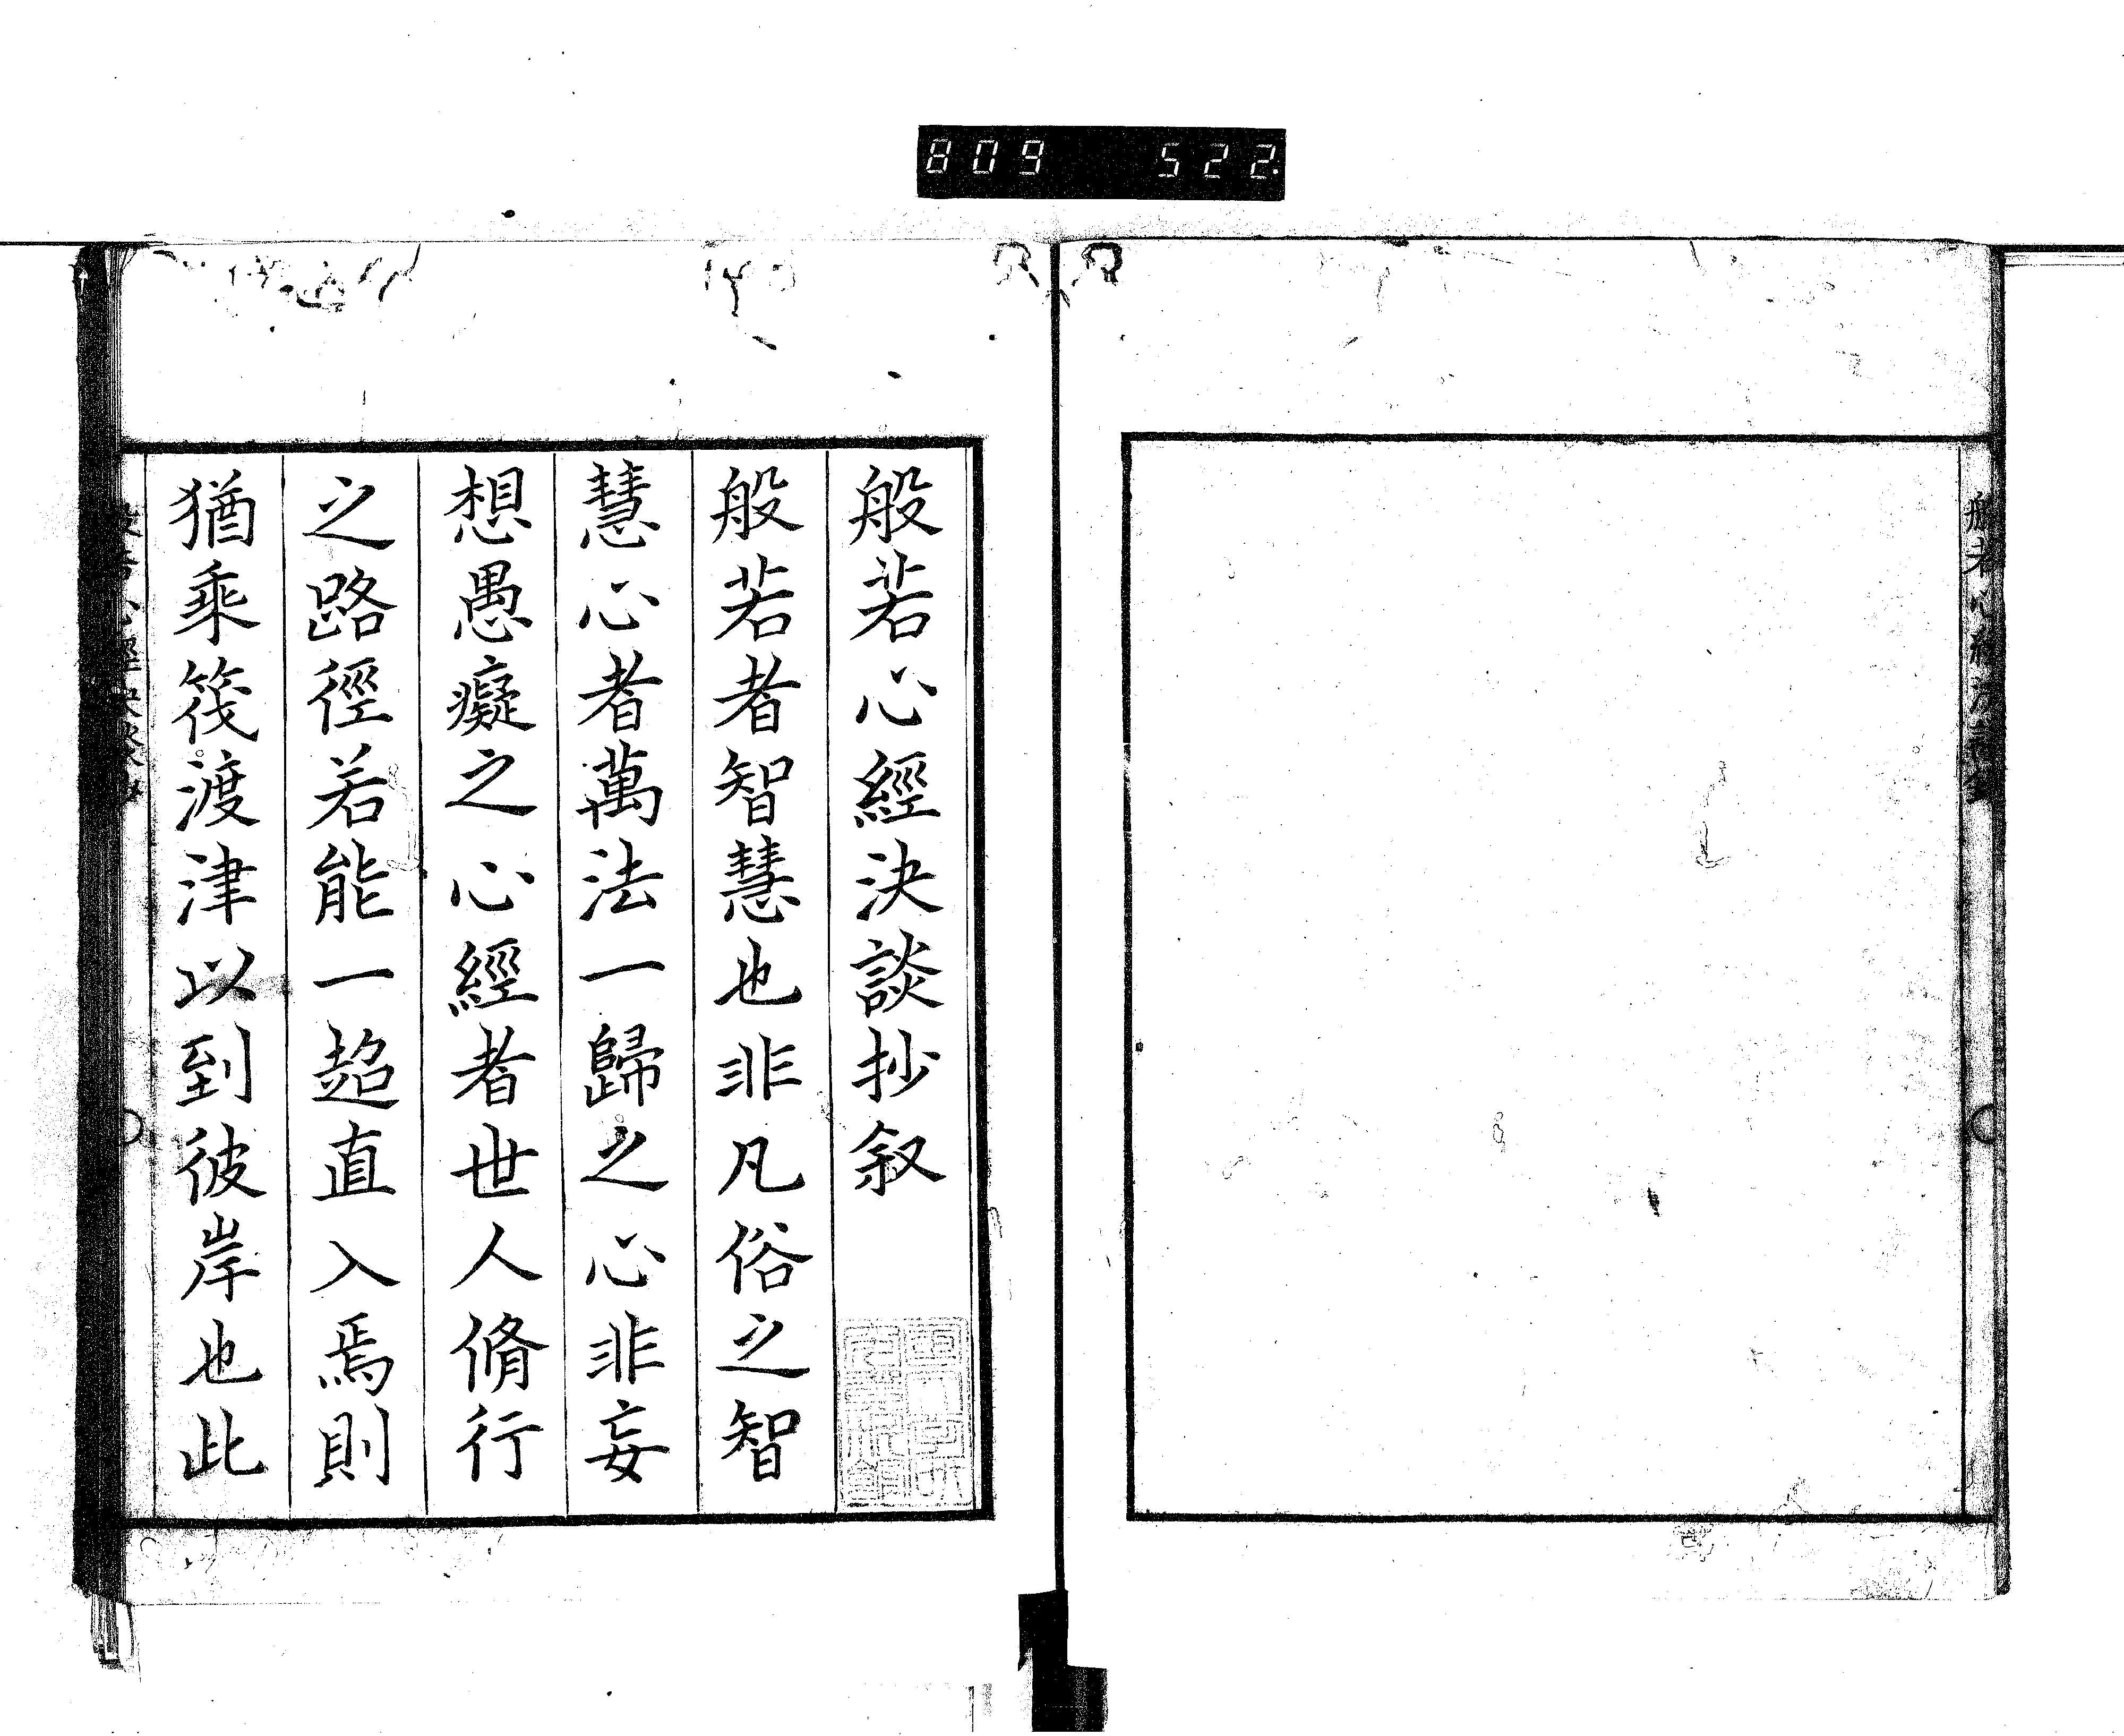 809 522
般若心經決談抄叙
般若者智慧也非凡俗之智
慧心者萬法一歸之心非妄
想愚癡之心經者世人脩行
之路徑若能一超直入焉則
猶乘筏渡津以到彼岸也此